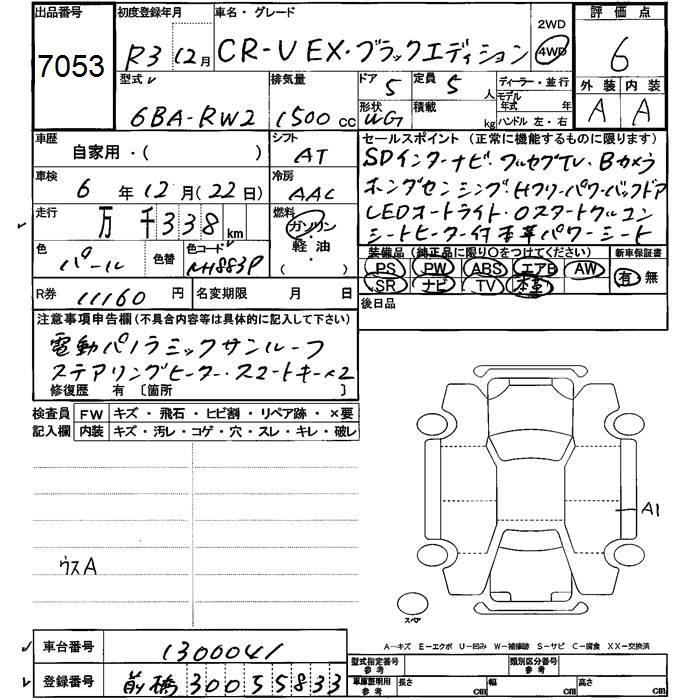 出品番号 初度登録年月 車名・グレード 2WD 評価点
7053 R3 12月 CR-V EX・ブラックエディション 4WD 6
型式 排気量 ドア 5 定員 5人 ディーラー・並行 外装 内装
6BA-RW2 1500cc 形状 WG 積載 kg モデル年式 年 A A
ハンドル 左・右
車歴 シフト セールスポイント (正常に機能するものに限ります)
自家用・( ) AT SDインターナビ・フルセグTV・Bカメラ
車検 冷房 ホンダセンシング・Hフリーパワーバックドア
6年12月(22日) AAC LEDオートライト・Oスタートクルコン
走行 燃料 シートヒーター付本革パワーシート
万千338km ガソリン・軽油・( )
色 色替 色コード 装備品 (純正品に限り○をつけてください) 新車保証書
パール NH883P PS PW ABS エアB AW 有 無
SR ナビ TV 本革
R券 11160円 名変期限 月 日 後日品
注意事項申告欄 (不具合内容等は具体的に記入して下さい)
電動パノラミックサンルーフ
ステアリングヒーター・スマートキー×2
修復歴 有 〔箇所 〕
検査員 FW キズ・飛石・ヒビ割・リペア跡・×要
記入欄 内装 キズ・汚レ・コゲ・穴・スレ・キレ・破レ
A1
ウスA
スペア
A-キズ E-エクボ U-凹み W-補修跡 S-サビ C-腐食 XX-交換済
車台番号 1300041 型式指定番号 参考 類別区分番号 参考
登録番号 前橋300 5 5833 車庫証明用 参考 長さ cm 幅 cm 高さ cm